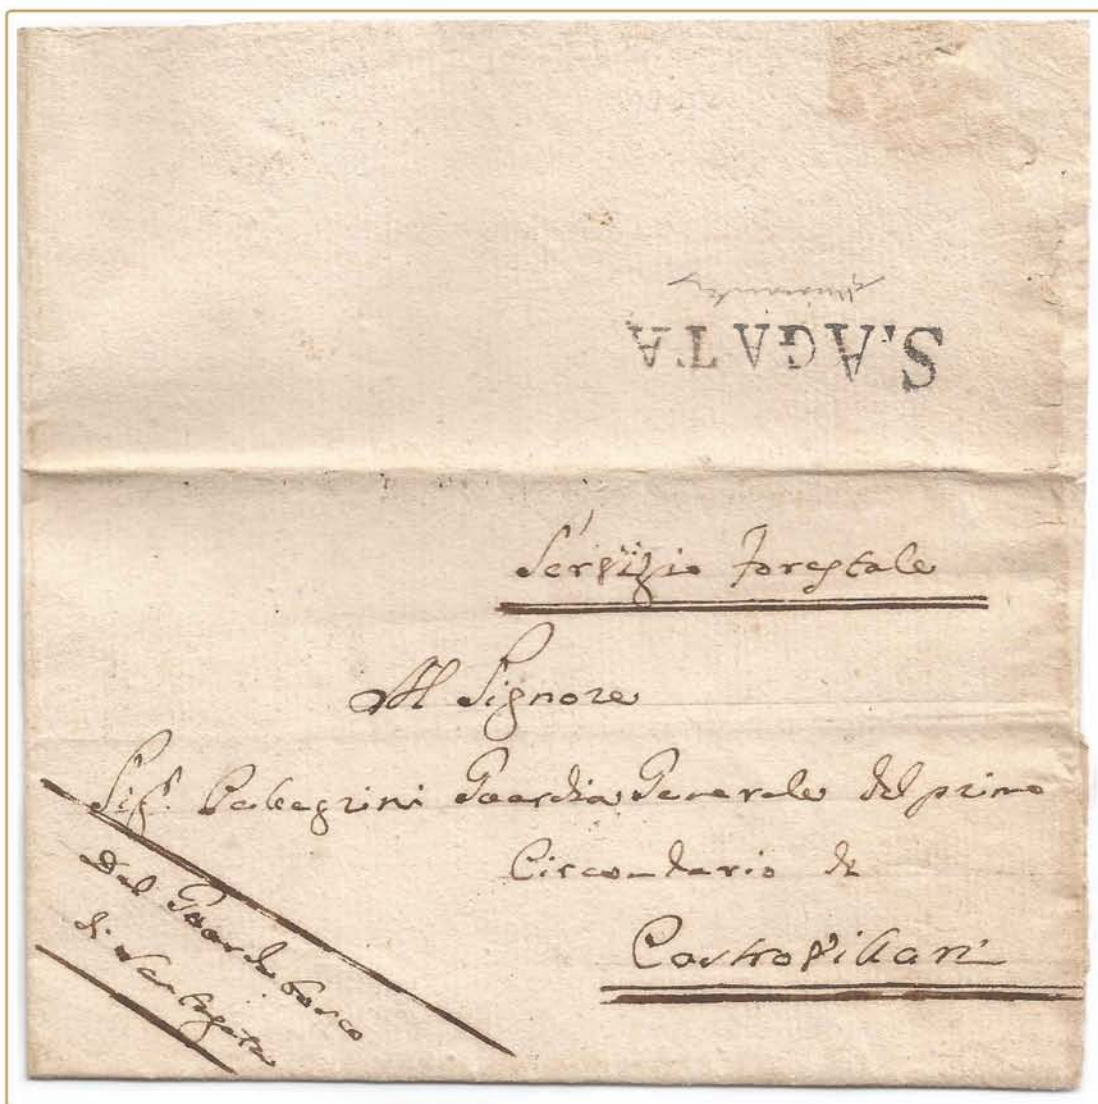 S. AGATA
Servizio Forestale
Al Signore
Sig.r Pellegrini Guardia Generale del primo
Circondario di
Castrovillari
Dal Guardabosco
di Santagata